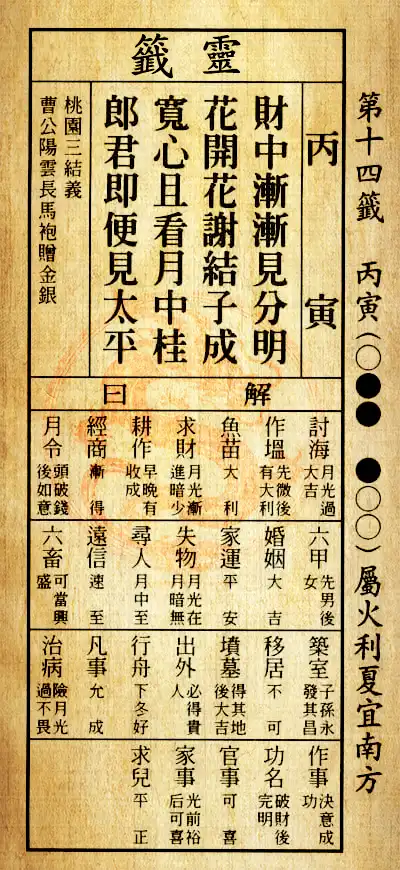 第十四籤　丙寅(○●●　●○○)屬火利夏宜南方
靈籤
丙寅
財中漸漸見分明
花開花謝結子成
寬心且看月中桂
郎君即便見太平
桃園三結義
曹公陽雲長馬袍贈金銀
解曰
討海 月光過大吉
作塭 先微後有大利
魚苗 大利
求財 月光漸進暗少
耕作 早晚有收成
經商 漸得
月令 頭破錢後如意
六甲 先男後女
婚姻 大吉
家運 平安
失物 月光在月暗無
尋人 月中至
遠信 速至
六畜 可當興盛
築室 子孫永發其昌
移居 不可
墳墓 得其地後大吉
出外 必得貴人
行舟 下冬好
凡事 允成
治病 險月光過不畏
作事 決意成功
功名 破財後完明
官事 可喜
家事 光前裕后可喜
求兒 平正